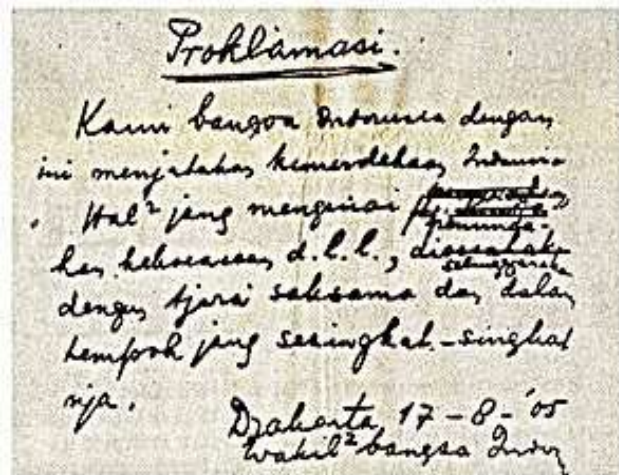 Proklamasi.
Kami bangsa Indonesia dengan
ini menjatakan kemerdekaan Indonesia
. Hal² jang mengenai
peminda-
han kekoeasaan d.l.l.,
diselenggarakan
dengan tjara saksama dan dalam
tempoh jang sesingkat-singkat
nja.
Djakarta, 17-8-'05
Wakil² bangsa Indon